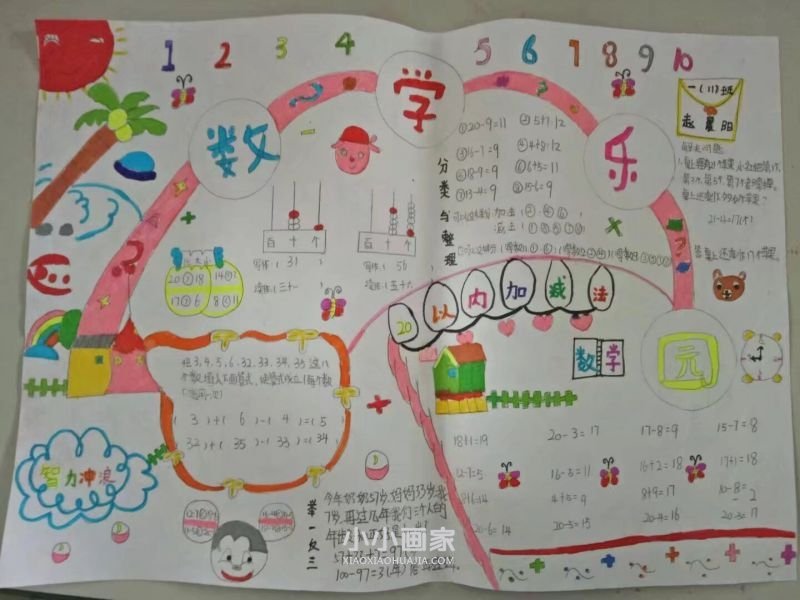 1 2 3 4 5 6 7 8 9 10
数学乐园
一(11)班
赵晨阳
分类与整理
①20-9=11 ②5+7=12
③16-7=9 ④4+8=12
⑤18-9=9 ⑥6+5=11
⑦13-4=9 ⑧15-6=9
解决问题
21-4=17(个)
百十个
写作(31)
读作(三十一)
百十个
写作(56)
读作(五十六)
比大小
20>18 14>11
17>6 8<11
20以内加减法
数学
把3,4,5,6,32,33,34,35这八
个数填入下面算式,使算式成立(每个数
(3)+(6)-(4)=(5)
(32)+(35)-(33)=(34)
智力冲浪
举一反三
今年奶奶57岁,妈妈33岁,我
7岁,再过几年我们三个人的
57+33+7=97
100-97=3(年)
18+1=19 20-3=17 17-8=9 15-7=8
12-7=5 16-5=11 16+2=18 17+1=18
8+6=14 4+5=9 8+9=17 10-8=2
20-6=14 20-5=15 20-4=16 20-3=17
小小画家
XIAOXIAOHUAJIA.COM